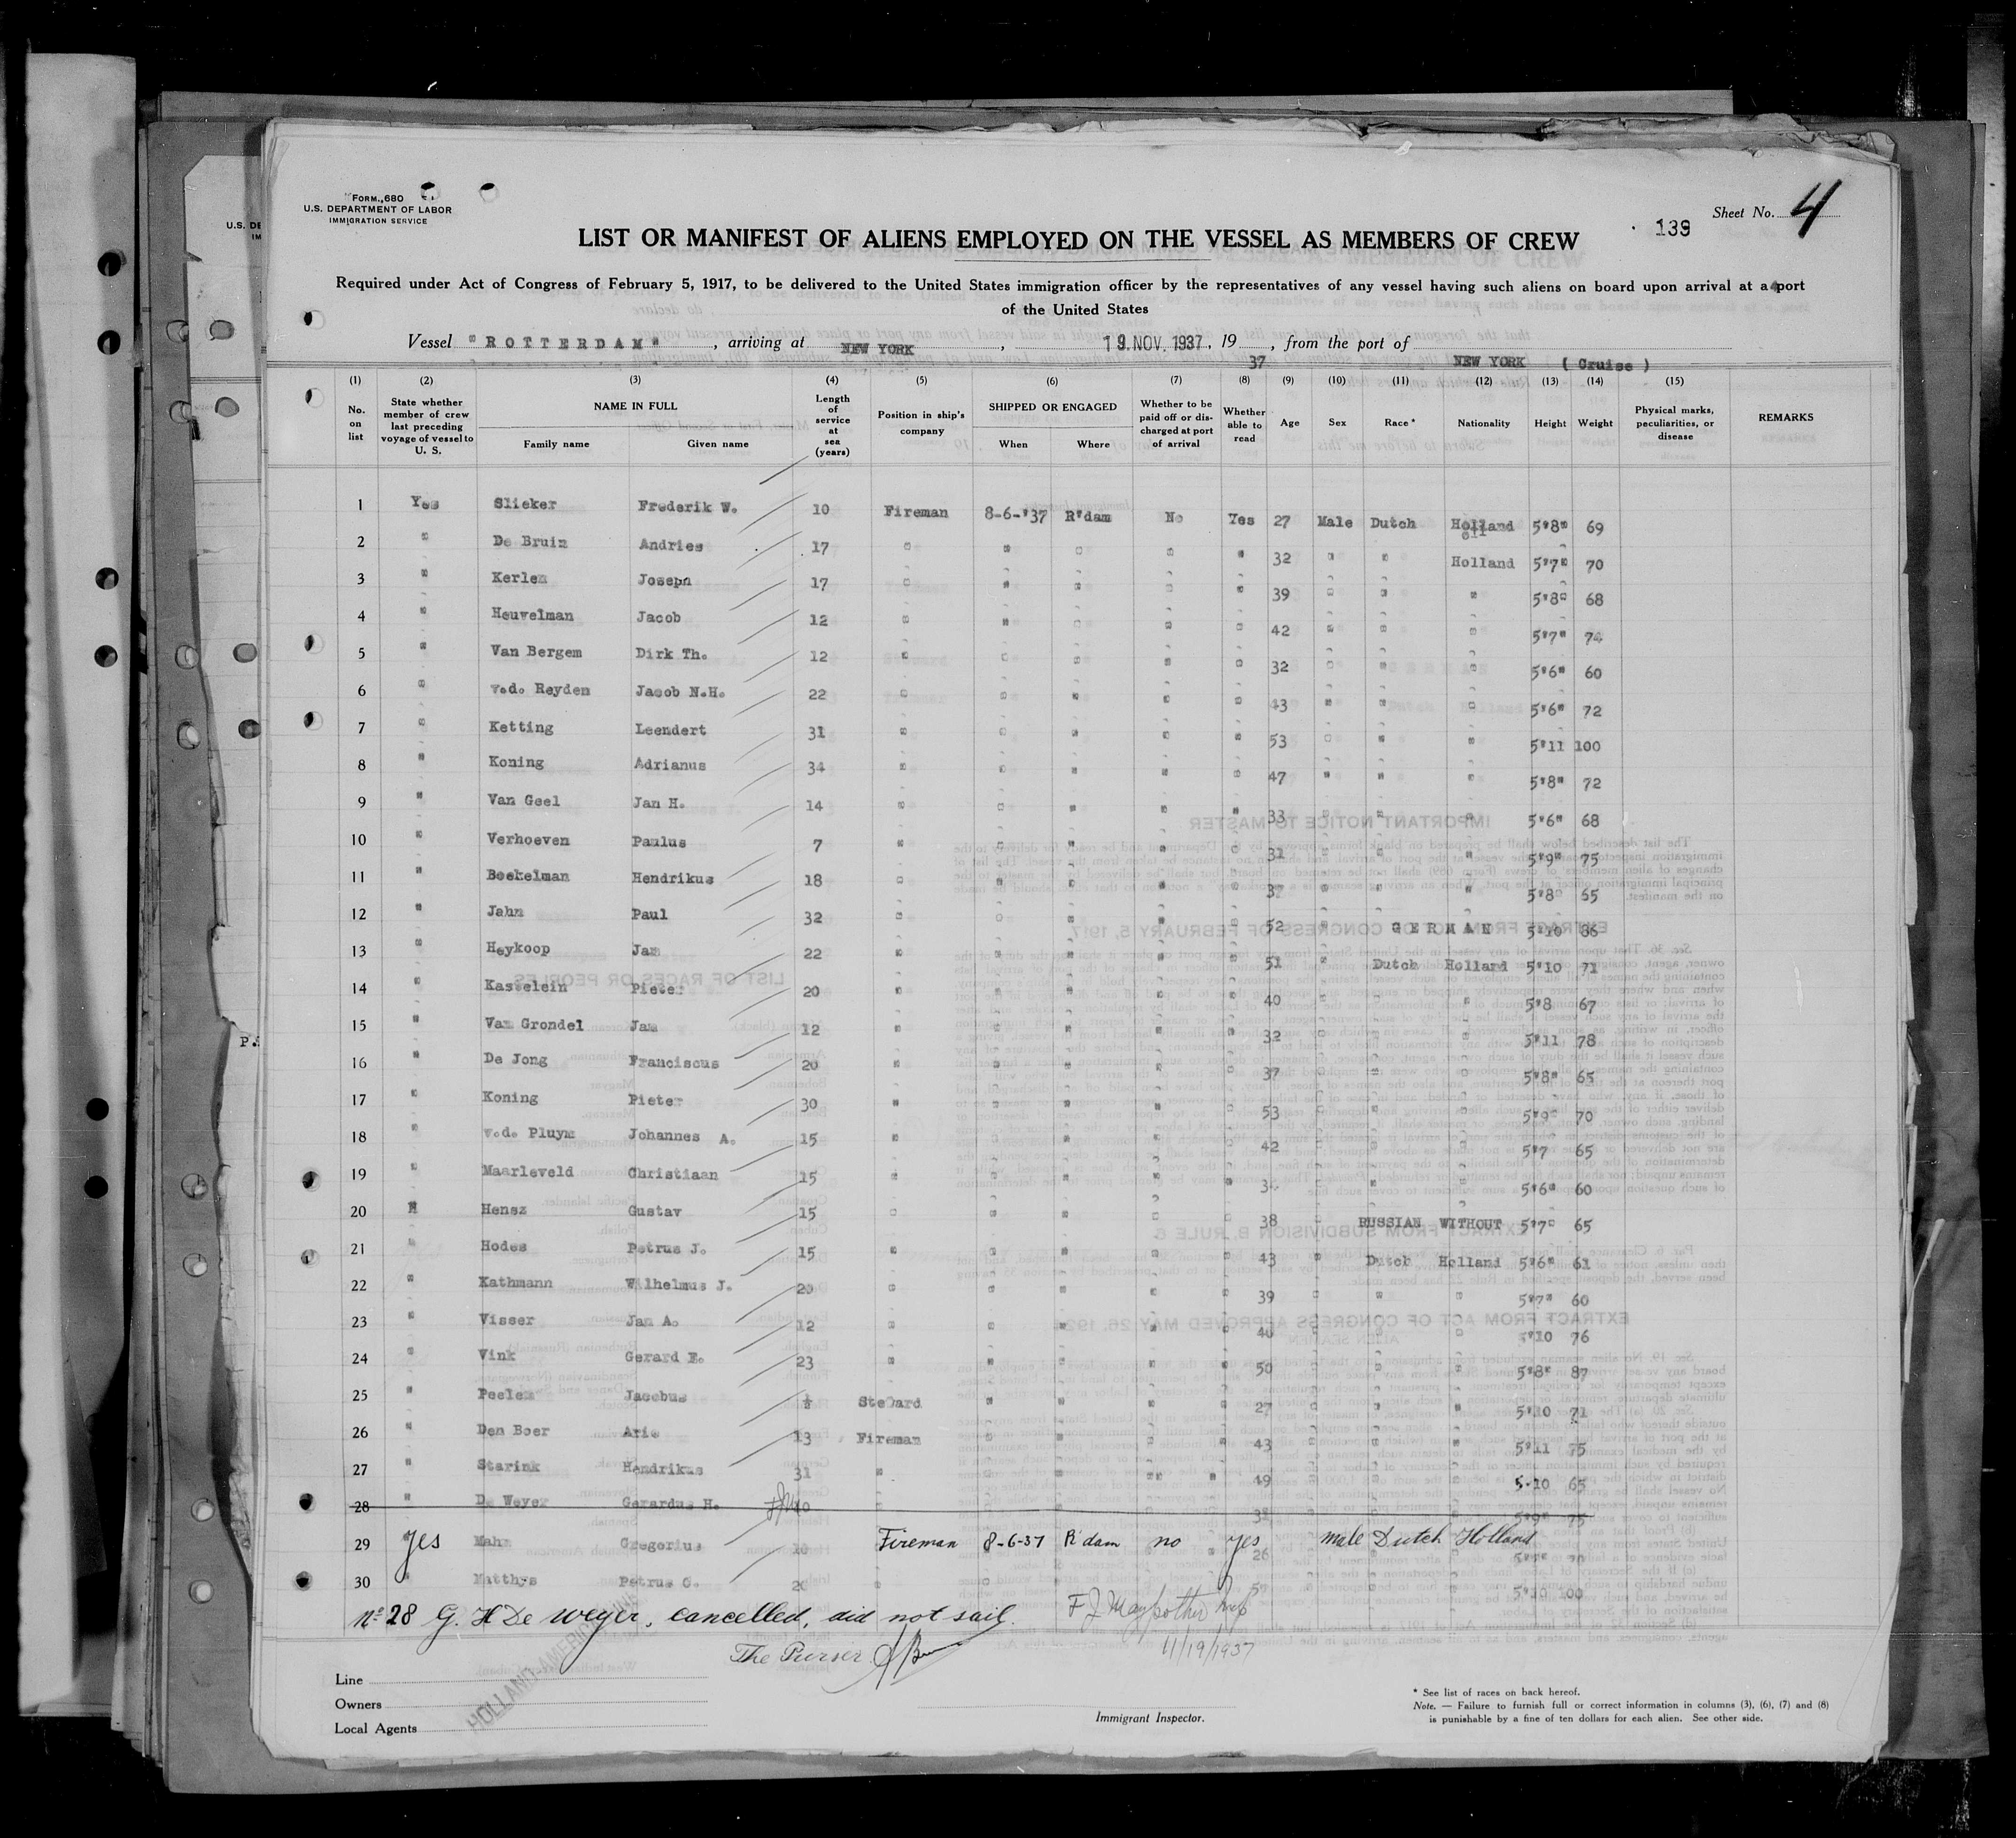 FORM 680
U.S. DEPARTMENT OF LABOR
IMMIGRATION SERVICE
Sheet No. 4
139
LIST OR MANIFEST OF ALIENS EMPLOYED ON THE VESSEL AS MEMBERS OF CREW
Required under Act of Congress of February 5, 1917, to be delivered to the United States immigration officer by the representatives of any vessel having such aliens on board upon arrival at a port
of the United States
Vessel "ROTTERDAM", arriving at NEW YORK, 19 NOV. 1937, 19 37, from the port of NEW YORK ( Cruise )
(1) (2) (3) (4) (5) (6) (7) (8) (9) (10) (11) (12) (13) (14) (15)
No. on list State whether member of crew last preceding voyage of vessel to U. S. NAME IN FULL Family name Given name Length of service at sea (years) Position in ship's company SHIPPED OR ENGAGED When Where Whether to be paid off or discharged at port of arrival Whether able to read Age Sex Race * Nationality Height Weight Physical marks, peculiarities, or disease REMARKS
1 Yes Slieker Frederik W. 10 Fireman 8-6-'37 R'dam No Yes 27 Male Dutch Holland 5'8" 69
2 " De Bruin Andries 17 " " " " " 32 " " Holland 5'7" 70
3 " Kerlen Joseph 17 " " " " " 39 " " " 5'8" 68
4 " Heuvelman Jacob 12 " " " " " 42 " " " 5'7" 74
5 " Van Bergem Dirk Th. 12 " " " " " 32 " " " 5'6" 60
6 " v.d. Reyden Jacob N.H. 22 " " " " " 43 " " " 5'6" 72
7 " Ketting Leendert 31 " " " " " 53 " " " 5'11 100
8 " Koning Adrianus 34 " " " " " 47 " " " 5'8" 72
9 " Van Geel Jan H. 14 " " " " " 33 " " " 5'6" 68
10 " Verhoeven Paulus 7 " " " " " 31 " " " 5'9" 75
11 " Boekelman Hendrikus 18 " " " " " 37 " " " 5'8" 65
12 " Jahn Paul 32 " " " " " 52 " GERMAN 5'10 86
13 " Heykoop Jan 22 " " " " " 51 " Dutch Holland 5'10 71
14 " Kasselein Pieter 20 " " " " " 40 " " " 5'8 67
15 " Van Grondel Jan 12 " " " " " 32 " " " 5'11 78
16 " De Jong Franciscus 20 " " " " " 37 " " " 5'8" 65
17 " Koning Pieter 30 " " " " " 53 " " " 5'9" 70
18 " v.d. Pluym Johannes A. 15 " " " " " 42 " " " 5'7 65
19 " Maarleveld Christiaan 15 " " " " " " " " 5'6" 60
20 " Hensz Gustav 15 " " " " " 38 " RUSSIAN WITHOUT 5'7" 65
21 " Hodes Petrus J. 15 " " " " " 43 " Dutch Holland 5'6" 61
22 " Kathmann Wilhelmus J. 20 " " " " " 39 " " " 5'7" 60
23 " Visser Jan A. 12 " " " " " 40 " " " 5'10 76
24 " Vink Gerard E. 23 " " " " " 50 " " " 5'8" 87
25 " Peelen Jacobus Steward " " " " 27 " " " 5'10 71
26 " Den Boer Arie 13 Fireman " " " " 43 " " " 5'11 75
27 " Starink Hendrikus 31 " " " " " 49 " " " 5'10 65
28 " De Weyer Gerardus H. 10 " " " " " " " " 5'9" 75
29 yes Mahn Gregorius 10 Fireman 8-6-37 R'dam no yes 26 male Dutch Holland
30 " Matthys Petrus C. 20 " " 5'10 100
No 28 G. H De Weyer, cancelled, did not sail.
The Purser
11/19/1937
Line
Owners
Local Agents
HOLLAND-AMERICA LINE
Immigrant Inspector.
* See list of races on back hereof.
Note. — Failure to furnish full or correct information in columns (3), (6), (7) and (8)
is punishable by a fine of ten dollars for each alien. See other side.